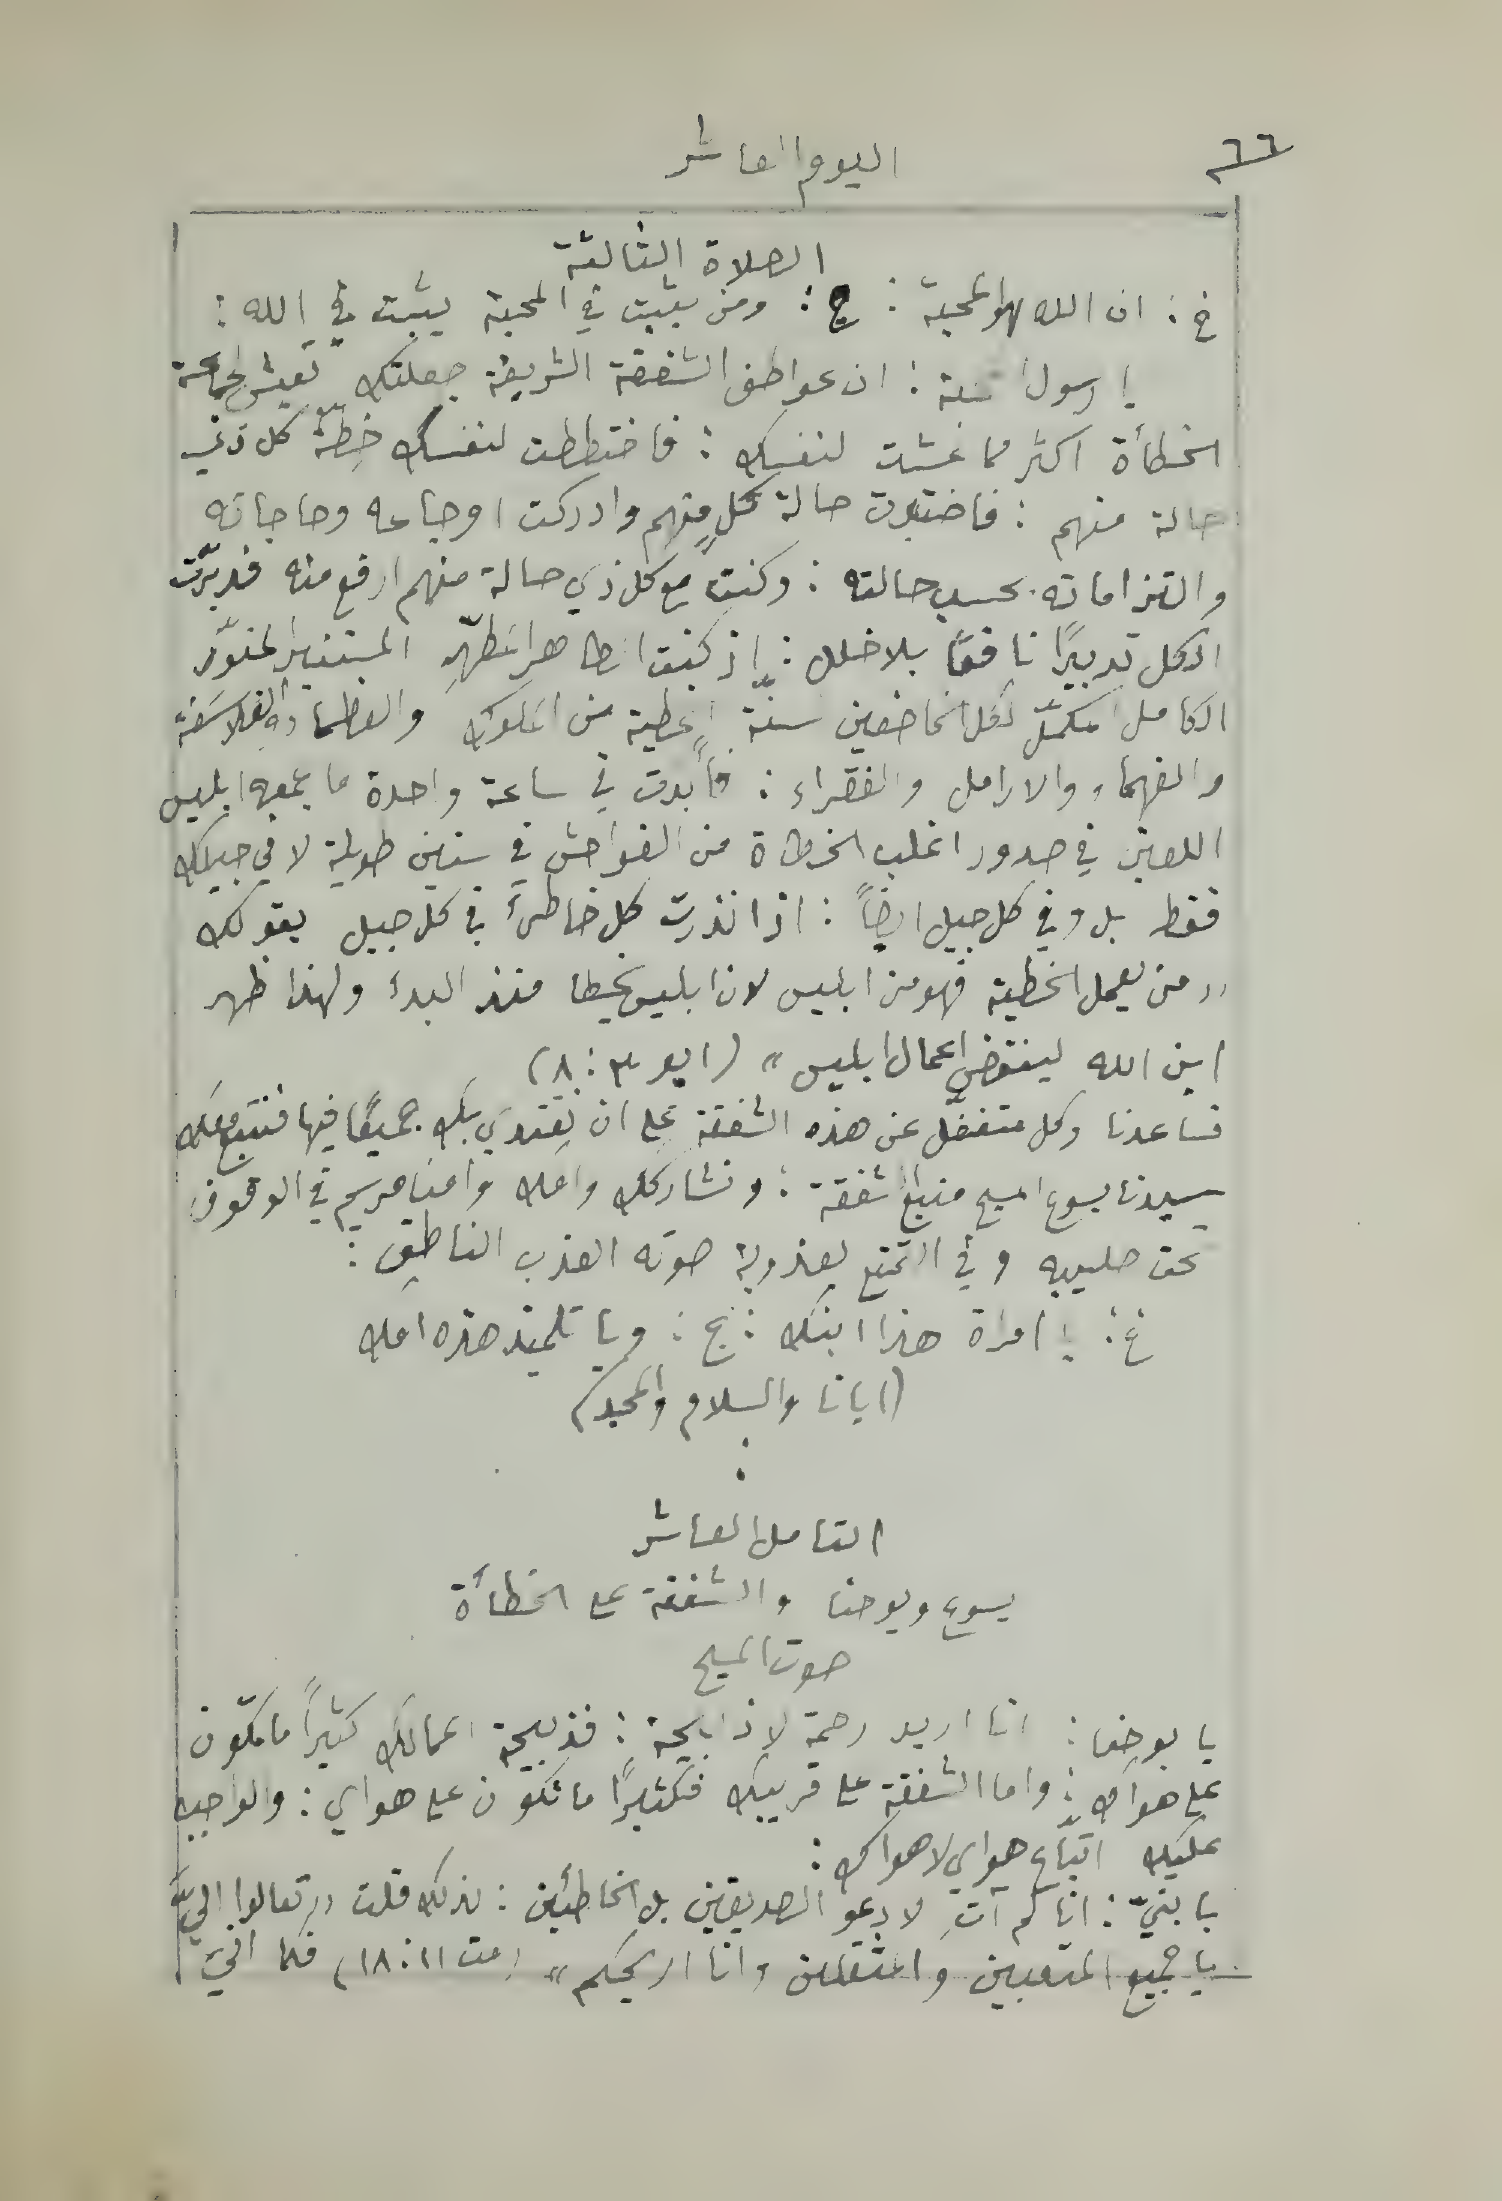 ٦٦
اليوم العاشر
الصلاة الثالثة
خ : ان الله هو المحبة : ج : ومن يثبت في المحبة يثبت في الله :
يا رسول : ان عواطف الشفقة الشريفة جعلتك تعيش لجماعة
الخطأة اكثر مما عشت لنفسك : فاختططت لنفسك خِطة كل ذي
حالة منهم : فاختبرت حالة كلٍ منهم وادركت اوجاعه وحاجاته
والتزاماته بحسب حالته : وكنت مع كل ذي حالة منهم ارفع منه فدبرّت
الكل تدبيرًا نافعًا بلا خلل : اذ كنت الطاهر المطهّر المستنير المنوّر
الكامل المكمّل لكل الخاضعين سنّة من الملوك والعظماء والفلاسفة
والفهماء والارامل والفقراء : فأبدت في ساعة واحدة ما يجمعه ابليس
اللعين في صدور اغلب الخطاة من الفواحش في سنين طويلة لا في جيلك
فقط بل وفي كل جيل ايضاً : اذ انذرت كل خاطئ في كل جيل بقولك
«من يعمل الخطية فهو من ابليس لان ابليس يخطا منذ البدء ولهذا ظهر
ابن الله لينقض اعمال ابليس» (ايو ٣ : ٨)
فساعدنا وكل متغفل عن هذه الشفقة على ان نقتدي بك جميعًا فيها فنتبع معك
سيدنا يسوع المسيح منبع الشفقة : ونشاركك وامك وامنا مريم في الوقوف
تحت صليبه وفي التمتع بعذوبة صوته العذب الناطق :
خ : يا امراة هذا ابنك : ج : ويا تلميذ هذه امك
(ابانا والسلام والمجد)
التامل العاشر
يسوع ويوحنا والشفقة على الخطأة
صوت المسيح
يا يوحنا : انا اريد رحمة لا ذبيحة : فذبيحة اعمالك كثيرًا ما تكوّن
على هواك : واما الشفقة على قريبك فكثيرًا ما تكون على هواي : والواجب
عليك اتبّاع هواي لا هواك :
يا بنيّ : اني لم آتِ لادعو الصديقين بل الخاطئين : لذلك قلت «تعالوا اليّ
يا جميع المتعبين والمثقلين وانا اريحكم» (مت ١١ : ١٨) فكما اني